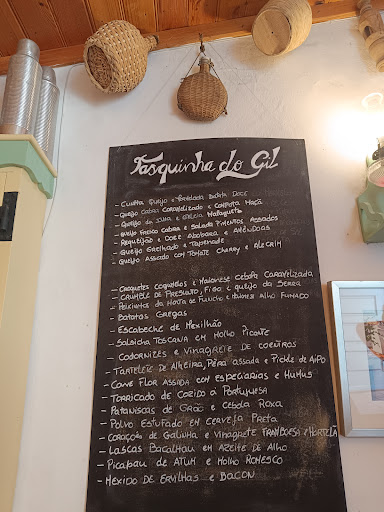 Tasquinha do Gil
- Cunha Queijo e Marmelada Batata Doce
- Queijo Cabra Caramelizado e Compota Maçã
- Queijo da Ilha e Geleia Malagueta
- Queijo Fresco Cabra e Salada Pimentos Assados
- Requeijão e Doce Abóbora e Amêndoas
- Queijo Grelhado e Tapenade
- Queijo Assado com Tomate Cherry e Alecrim
- Croquetes Cogumelos e Maionese Cebola Caramelizada
- Crumble de Presunto, Figo e Queijo da Serra
- Peixinhos da Horta de Funcho e Maionese Alho Fumado
- Batatas Gregas
- Escabeche de Mexilhão
- Salsicha Toscana em Molho Picante
- Codornizes e Vinagrete de Coentros
- Tartelete de Alheira, Pêra Assada e Pickle de Aipo
- Couve Flor Assada com Especiarias e Humus
- Torricado de Cozido à Portuguesa
- Pataniscas de Grão e Cebola Roxa
- Polvo Estufado em Cerveja Preta
- Coração de Galinha e Vinagrete Framboesa e Hortelã
- Lascas Bacalhau em Azeite de Alho
- Picapau de Atum e Molho Romesco
- Mexido de Ervilhas e Bacon